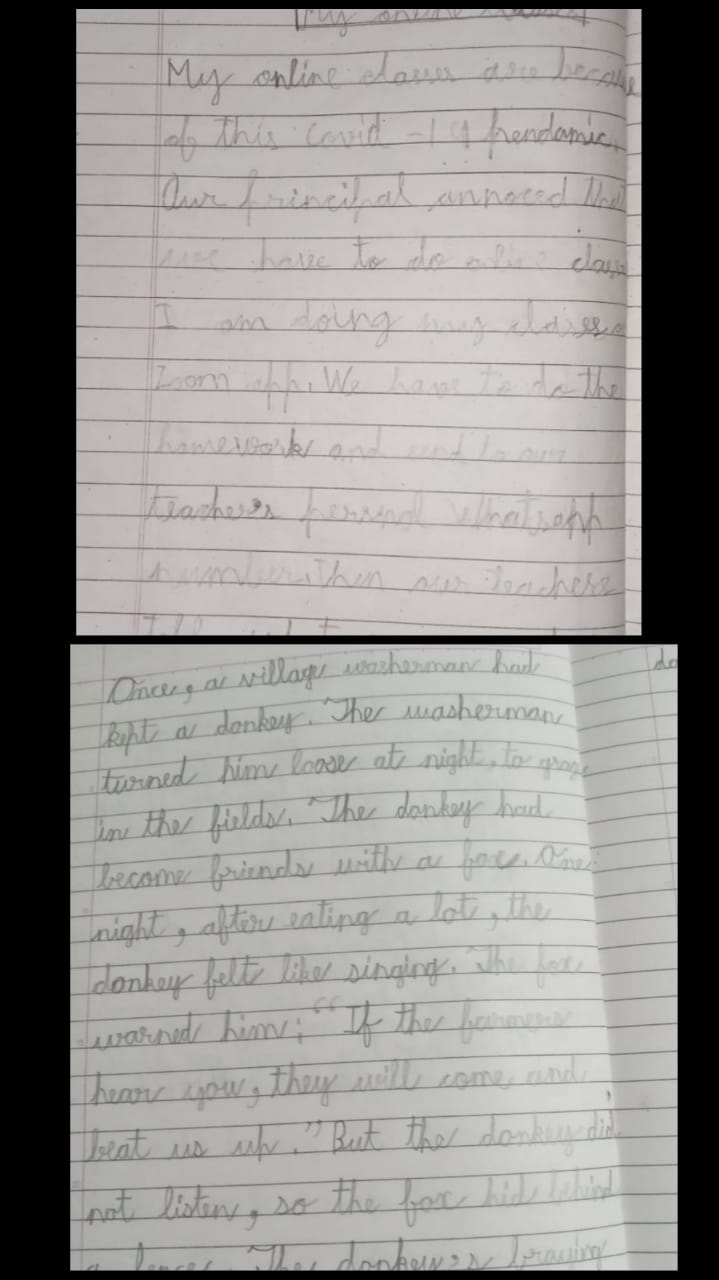 My online
My online classes are because
of this Covid -19 pendamic.
Our principal annoced that
we have to do online class
I am doing my classes
Zoom app. We have to do the
homework and send to our
teachers persnol Whatsapp
number. Then our teachers
Once, a village washerman had
kept a donkey. The washerman
turned him loose at night, to graze
in the fields. The donkey had
become friends with a fox. One
night, after eating a lot, the
donkey felt like singing. The fox
warned him; "If the farmers
hear you, they will come and
beat us up." But the donkey did
not listen, so the fox hid behind
a fence. The donkey's braying
do